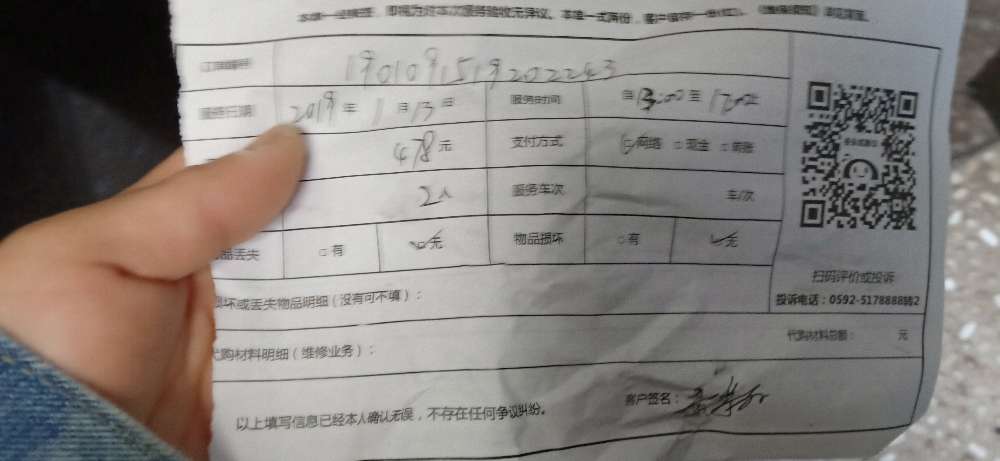 本单一经签署，即视为对本次服务验收无异议。本单一式两份，客户留存一份（红）。《售后须知》详见背面。
订单编号 1901091519202243
服务日期 2019年 1月13日 服务时间 13:00至17:00
478元 支付方式 网络 □现金 □转账
2人 服务车次 车/次
品丢失 □有 ☑无 物品损坏 □有 ☑无
扫码评价或投诉
损坏或丢失物品明细（没有可不填）：
投诉电话：0592-5178888转2
代购材料总额： 元
代购材料明细（维修业务）：
客户签名：
以上填写信息已经本人确认无误，不存在任何争议纠纷。